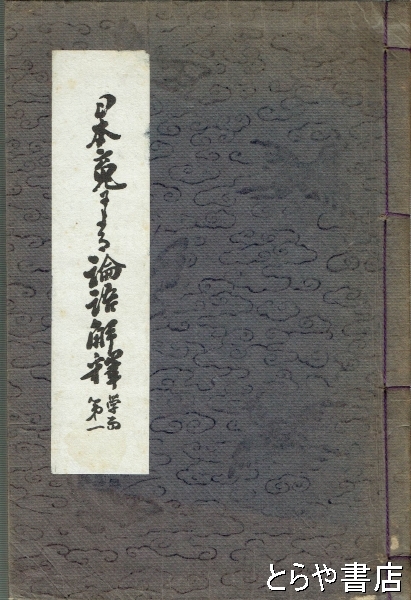 日本魂による論語解釋
学而
第一
とらや書店